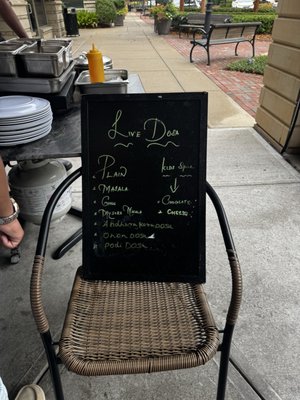 Live Dosa
Plain
Masala
Ghee
Mysore Masala
Andhra Kara Dosa
Onion Dosa
Podi Dosa
Kids Spcl
Chocolate
+ Cheese